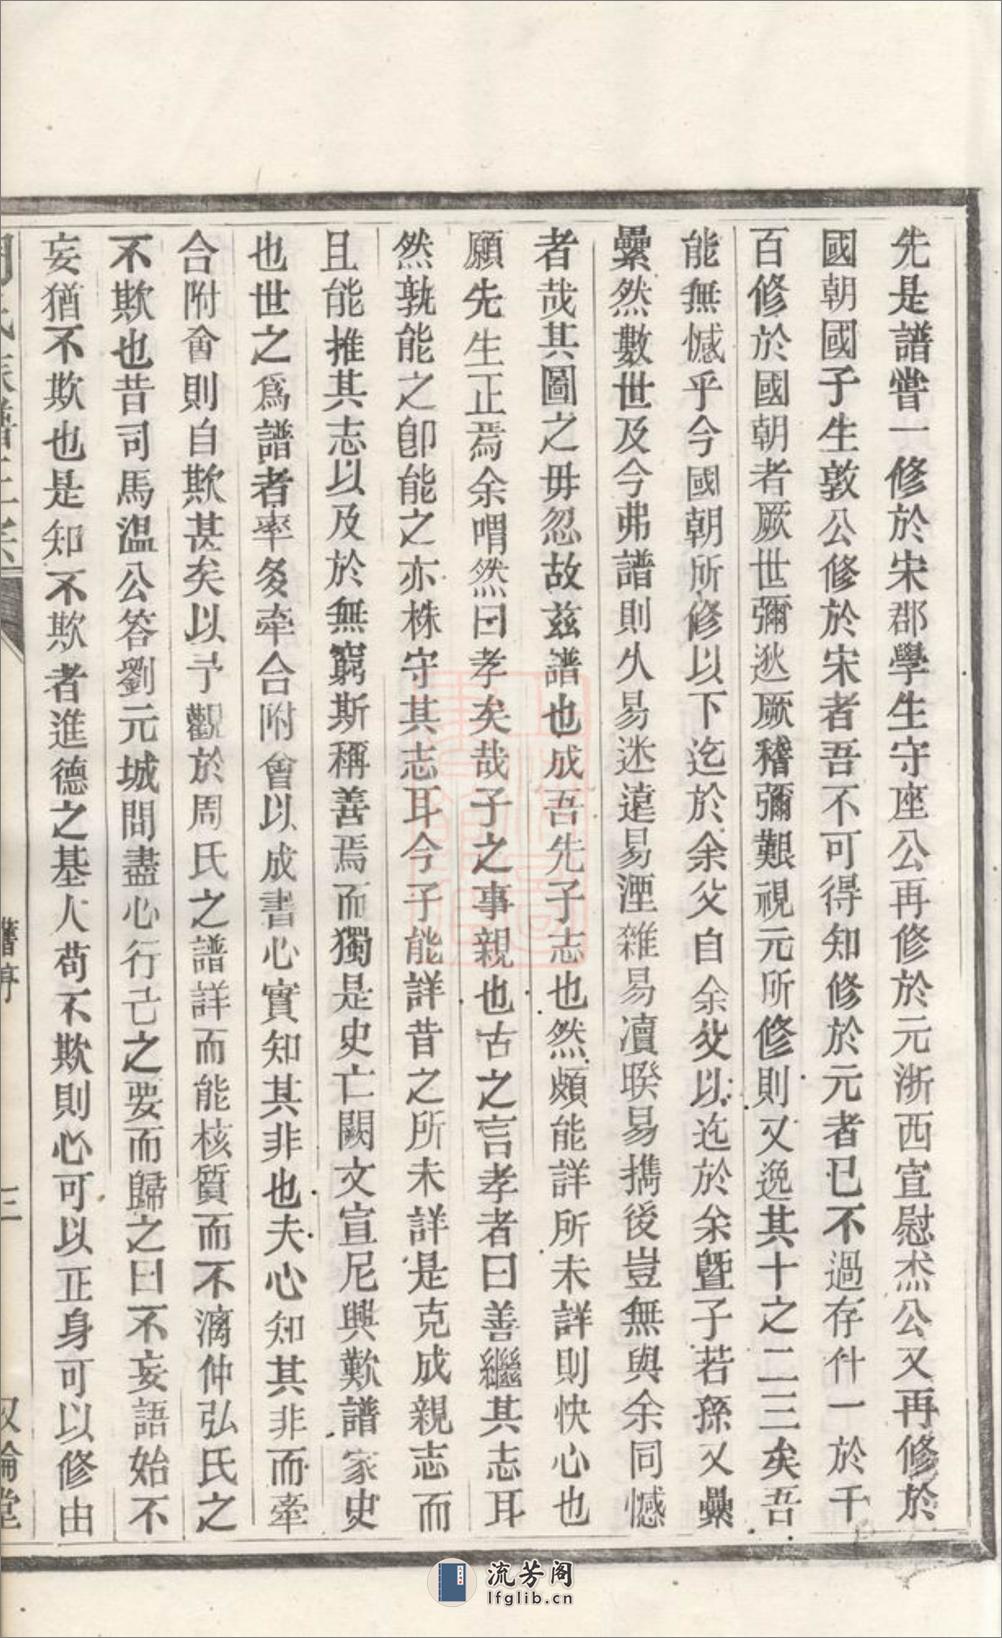 先是譜嘗一修於宋郡學生守座公再修於元浙西宣慰杰公又再修於
國朝國子生敦公修於宋者吾不可得知修於元者已不過存什一於千
百修於國朝者厥世彌逖厥稽彌艱視元所修則又逸其十之二三矣吾
能無憾乎今國朝所修以下迄於余父自余父以迄於余曁子若孫又纍
纍然數世及今弗譜則久易迷遠易湮雜易凟暌易攜後豈無與余同憾
者哉其圖之毋忽故兹譜也成吾先子志也然頗能詳所未詳則快心也
願先生正焉余喟然曰孝矣哉子之事親也古之言孝者曰善繼其志耳
然孰能之卽能之亦株守其志耳今子能詳昔之所未詳是克成親志而
且能推其志以及於無窮斯稱善焉而獨是史亡闕文宣尼興歎譜家史
也世之爲譜者率多牽合附會以成書心實知其非也夫心知其非而牽
合附會則自欺甚矣以予觀於周氏之譜詳而能核質而不漓仲弘氏之
不欺也昔司馬温公答劉元城問盡心行己之要而歸之曰不妄語始不
妄猶不欺也是知不欺者進德之基人苟不欺則心可以正身可以修由
舊序
三
流芳阁
lfglib.cn